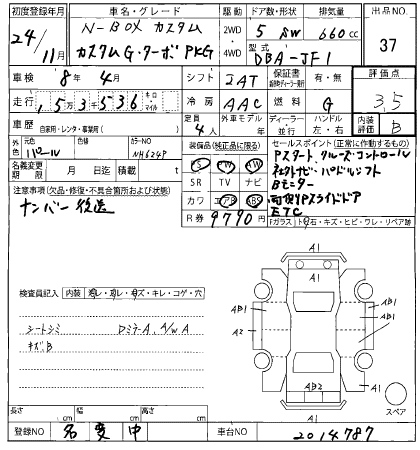 初度登録年月 車名・グレード 駆動 ドア数・形状 排気量 出品NO
24/11月 N-BOX カスタム 2WD 5 SW 660cc 37
カスタムG・ターボPKG 4WD 型式 DBA-JF1
車検 8年4月 シフト IAT 保証書 有・無 評価点
走行 15万3千536 キロ・マイル 冷房 AAC 燃料 G 3.5
車歴 自家用・レンタ・事業用( ) 定員 4人 外車モデル 年 ディーラー・並行 ハンドル 左・右 内装評価 B
外色 元色 パール 色替 カラーNO NH624P 装備品(純正品に限る) セールスポイント(正常に作動するもの)
名義変更期限 月 日迄 積載量 t PS PW Pスタート、クルーズコントロール
SR TV ナビ ギャザナビ・パドルシフト
注意事項(欠品・修復・不具合箇所および状態) カワ エアB ABS Bモニター
ナンバー後送 R券 9790円 両側Pスライドドア
ETC
Fガラス 飛石・キズ・ヒビ・ワレ・リペア跡
A1
検査員記入 内装 汚レ・切レ・キズ・キレ・コゲ・穴 AB1 AB1
シートシミ DミラーA、A/W A A2 A1
キズB
AB2 A1
A1 スペア
長さ cm 幅 cm 高さ cm
登録NO 名変中 車台NO 2014787